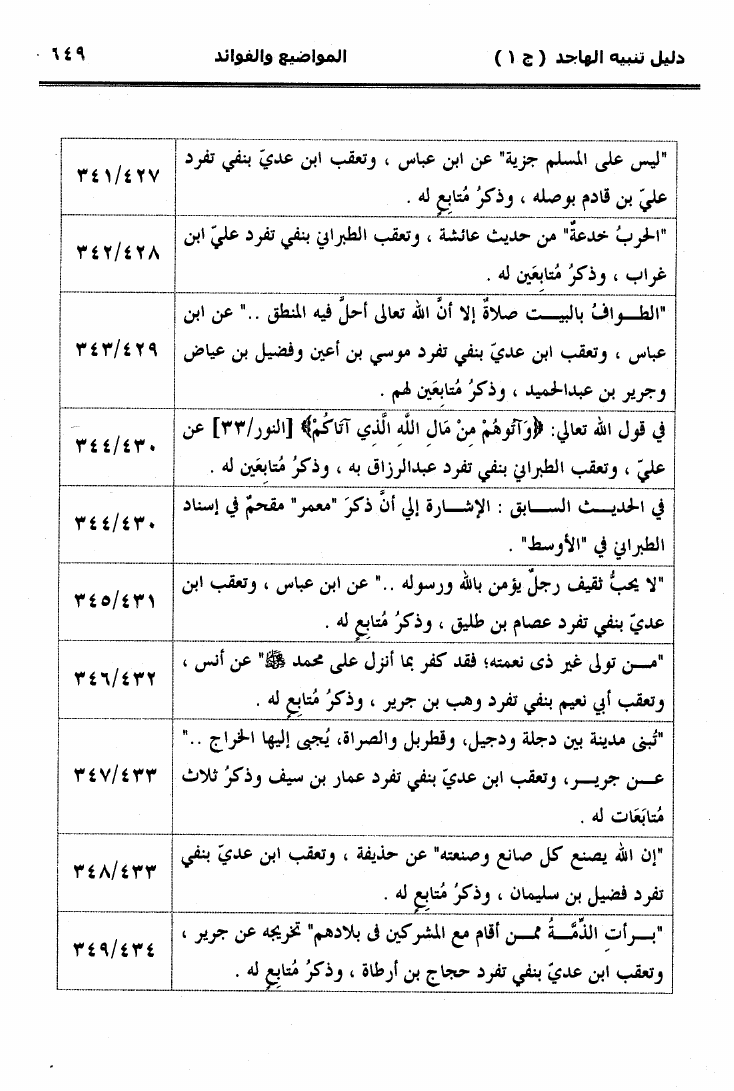 دليل تنبيه الهاجد ( ج ١ ) المواضيع والفوائد ٦٤٩
"ليس على المسلم جزية" عن ابن عباس ، وتعقب ابن عديّ بنفي تفرد
عليّ بن قادم بوصله ، وذكرُ مُتابِعٍ له .
٣٤١/٤٢٧
"الحربُ خدعةٌ" من حديث عائشة ، وتعقب الطبرانيّ بنفي تفرد عليّ ابن
غراب ، وذكرُ مُتابِعَين له .
٣٤٢/٤٢٨
"الطـوافُ بالبيـت صلاةٌ إلا أنَّ الله تعالى أحلَّ فيه المنطق .." عن ابن
عباس ، وتعقب ابن عديّ بنفي تفرد موسي بن أعين وفضيل بن عياض
وجرير بن عبدالحميد ، وذكرُ مُتابعَين لهم .
٣٤٣/٤٢٩
في قول الله تعالي: ﴿وَآتُوهُمْ مِنْ مَالِ اللَّهِ الَّذِي آتَاكُمْ﴾ [النور/٣٣] عن
عليّ ، وتعقب الطبرانيّ بنفي تفرد عبدالرزاق به ، وذكرُ مُتابِعَين له .
٣٤٤/٤٣٠
في الحديـث السـابق : الإشـارة إلي أنَّ ذكرَ "معمر" مقحمٌ في إسناد
الطبرانيّ في "الأوسط" .
٣٤٤/٤٣٠
"لا يحبُّ ثقيف رجلٌ يؤمن بالله ورسوله .." عن ابن عباس ، وتعقب ابن
عديّ بنفي تفرد عصام بن طليق ، وذكرُ مُتابِعٍ له .
٣٤٥/٤٣١
"مـن تولى غير ذى نعمته؛ فقد كفر بما أنزل على محمد ﷺ" عن أنس ،
وتعقب أبي نعيم بنفي تفرد وهب بن جرير ، وذكرُ مُتابِعٍ له .
٣٤٦/٤٣٢
"تُبنى مدينة بين دجلة ودجيل، وقطربل والصراة، يُجبى إليها الخراج .."
عـن جريـر، وتعقب ابن عديّ بنفي تفرد عمار بن سيف وذكرُ ثلاث
مُتابَعَات له .
٣٤٧/٤٣٣
"إن الله يصنع كل صانع وصنعته" عن حذيفة ، وتعقب ابن عديّ بنفي
تفرد فضيل بن سليمان ، وذكرُ مُتابِعٍ له .
٣٤٨/٤٣٣
"بـرأتِ الذِّمَّـةُ ممـن أقام مع المشركين فى بلادهم" تخريجه عن جرير ،
وتعقب ابن عديّ بنفي تفرد حجاج بن أرطاة ، وذكرُ مُتابِعٍ له .
٣٤٩/٤٣٤